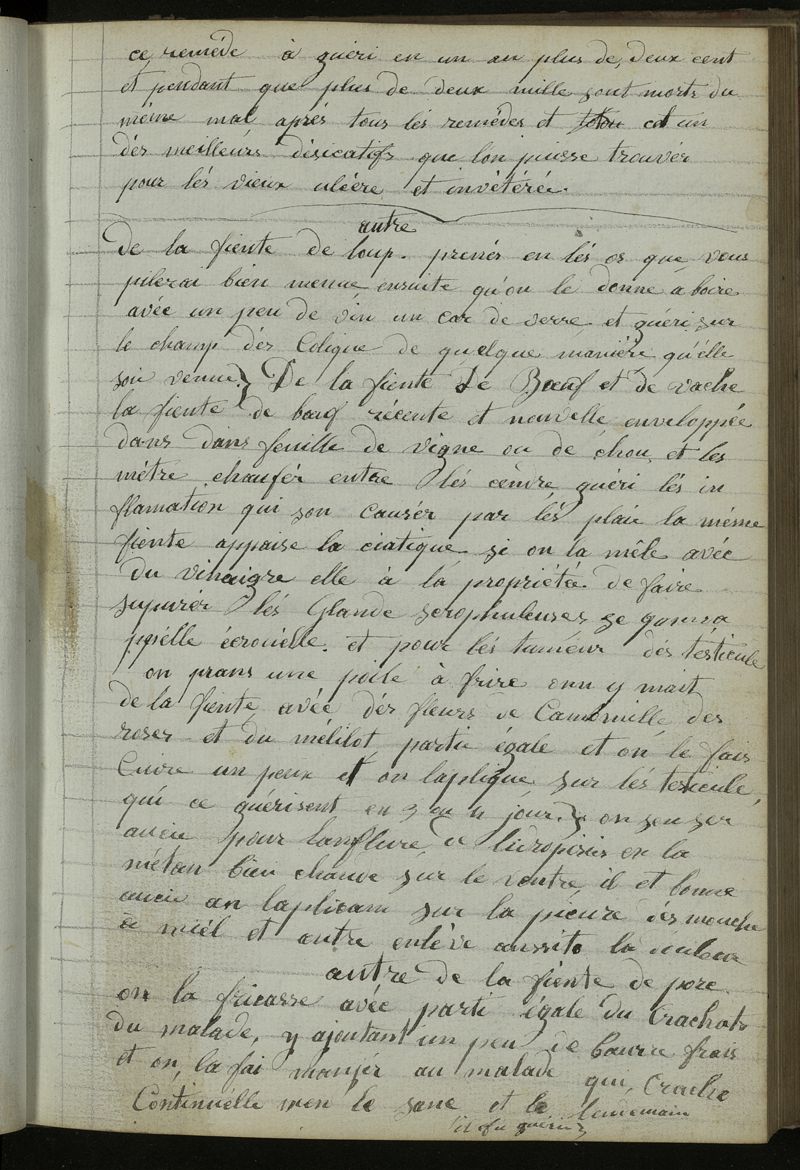 ce reméde à guéri en un an plus de deux cent
et pendant que plus de deux mille sont morts du
méme mal aprés tous lés remédes et et un
dés meilleurs désicatifs que lon puisse trouvér
pour lés vieux ulcére et invétérée.
autre
De la fiente de loup. prenés en lés os que vous
pilerai bien menue ensuite qu'on le donne a boire
avéc un peu de vin un car de verre et guéri sur
le champ dés Colique de quelque maniére qu'élle
soi venue } De la fiente de Bœuf et de vache
la fiente de bœuf récente et nouvelle enveloppée
dans dans feuille de vigne ou de chou et les
métre chaufér entre lés cendre guéri lés in
flamation qui son causér par lés plaie la méme
fiente appaise la ciatique si on la méle avéc
du vinaigre elle à la propriétée de faire
supurér lés Glande scrophuleuses
écrouélle. et pour lés tumeur dés tésticule
on prans une poile à frire onn y mait
de la fiente avéc dés fleurs de Camomille des
roses et du mélilot partie égale et on le fais
Cuire un peux et on laplique sur lés testicule,
qui ce guérisent en 3 ou 4 jour. } on sen ser
aucie pour lanflure de lidropisie en la
métan bien chaude sur le ventre il et bonne
aucie an laplicam sur la picure dés mouche
a miél et autre enléve aussito la douleur
autre de la fiente de porc.
on la fricasse avéc parti égale du Crachats
du malade, y ajoutant un peu de beurre frais
et on la fai manjér au malade qui Crache
Continuélle men le sanc et le lendemain
il fu guéri